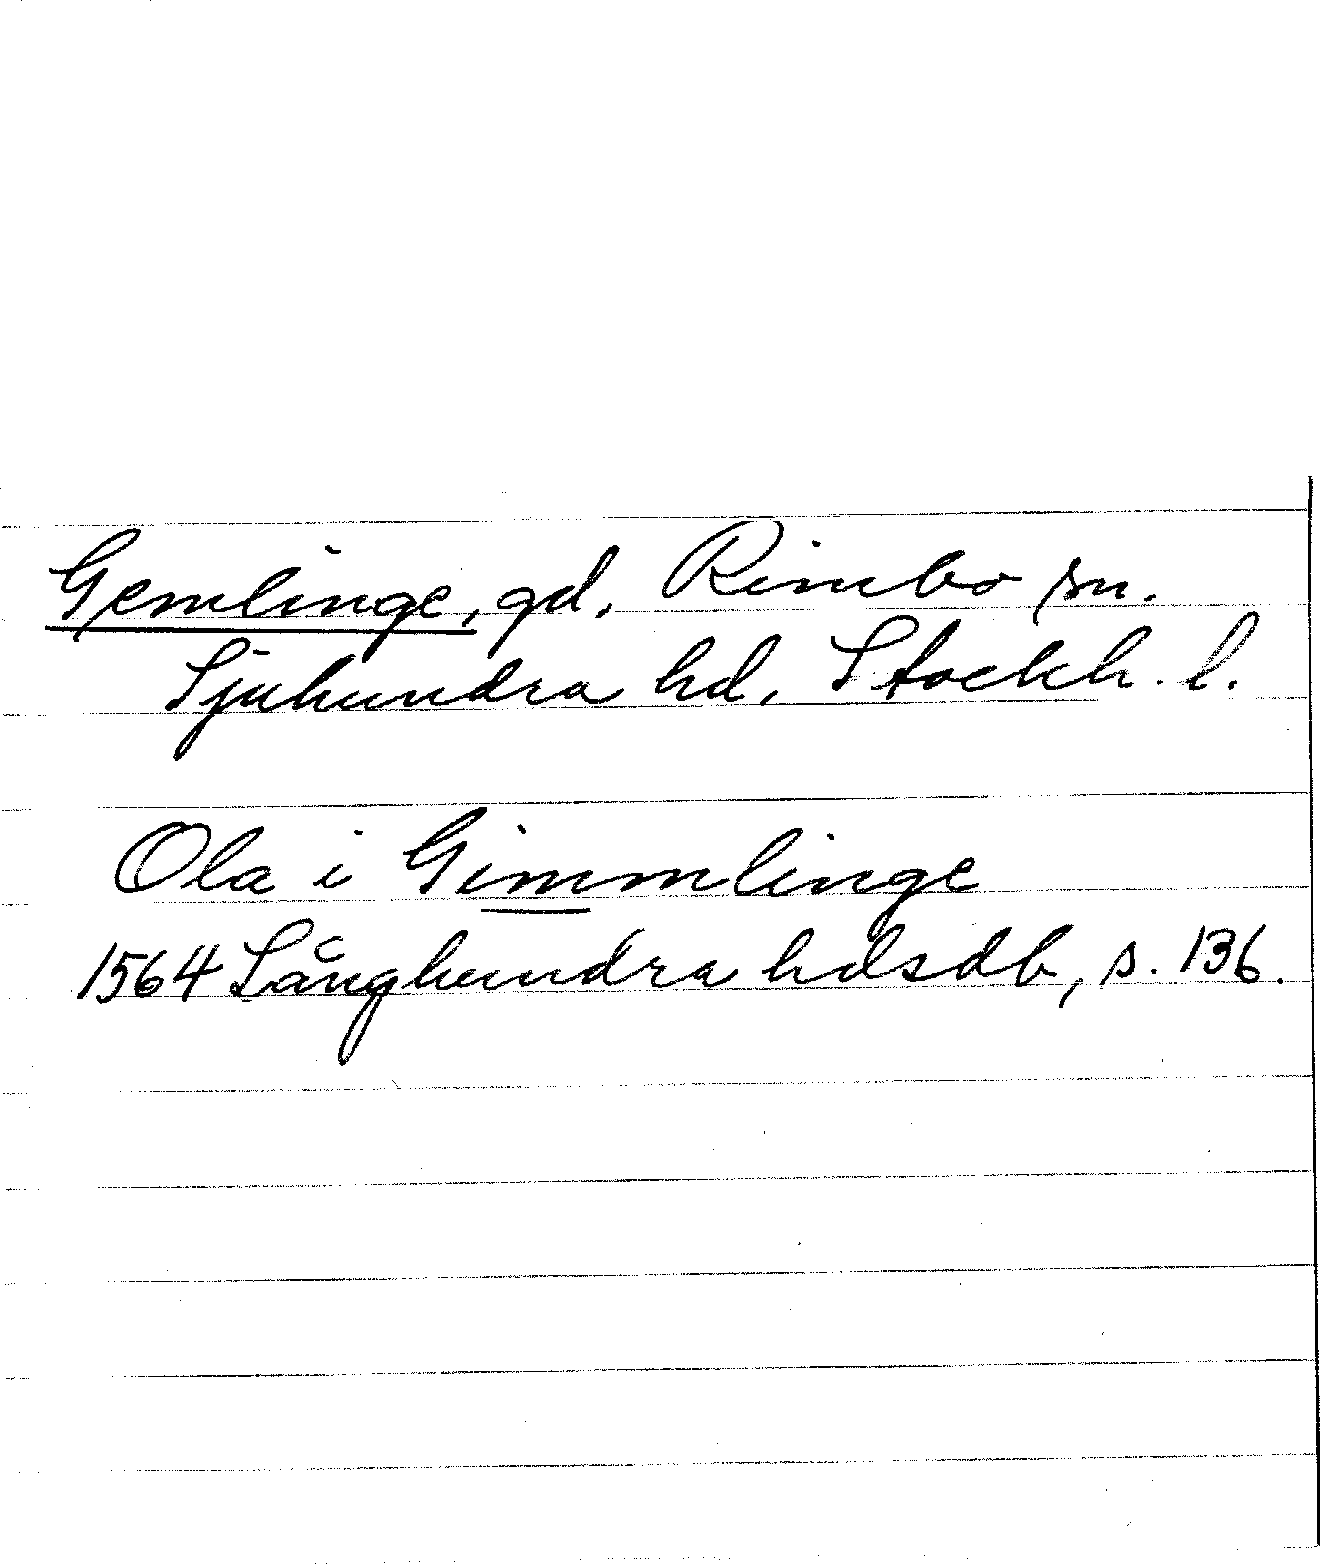 Gemlinge, gd, Rimbo sn.
Sjuhundra hd, Stockh. l.
Ola i Gimmlinge
1564 Långhundra hdsdb, s. 136.